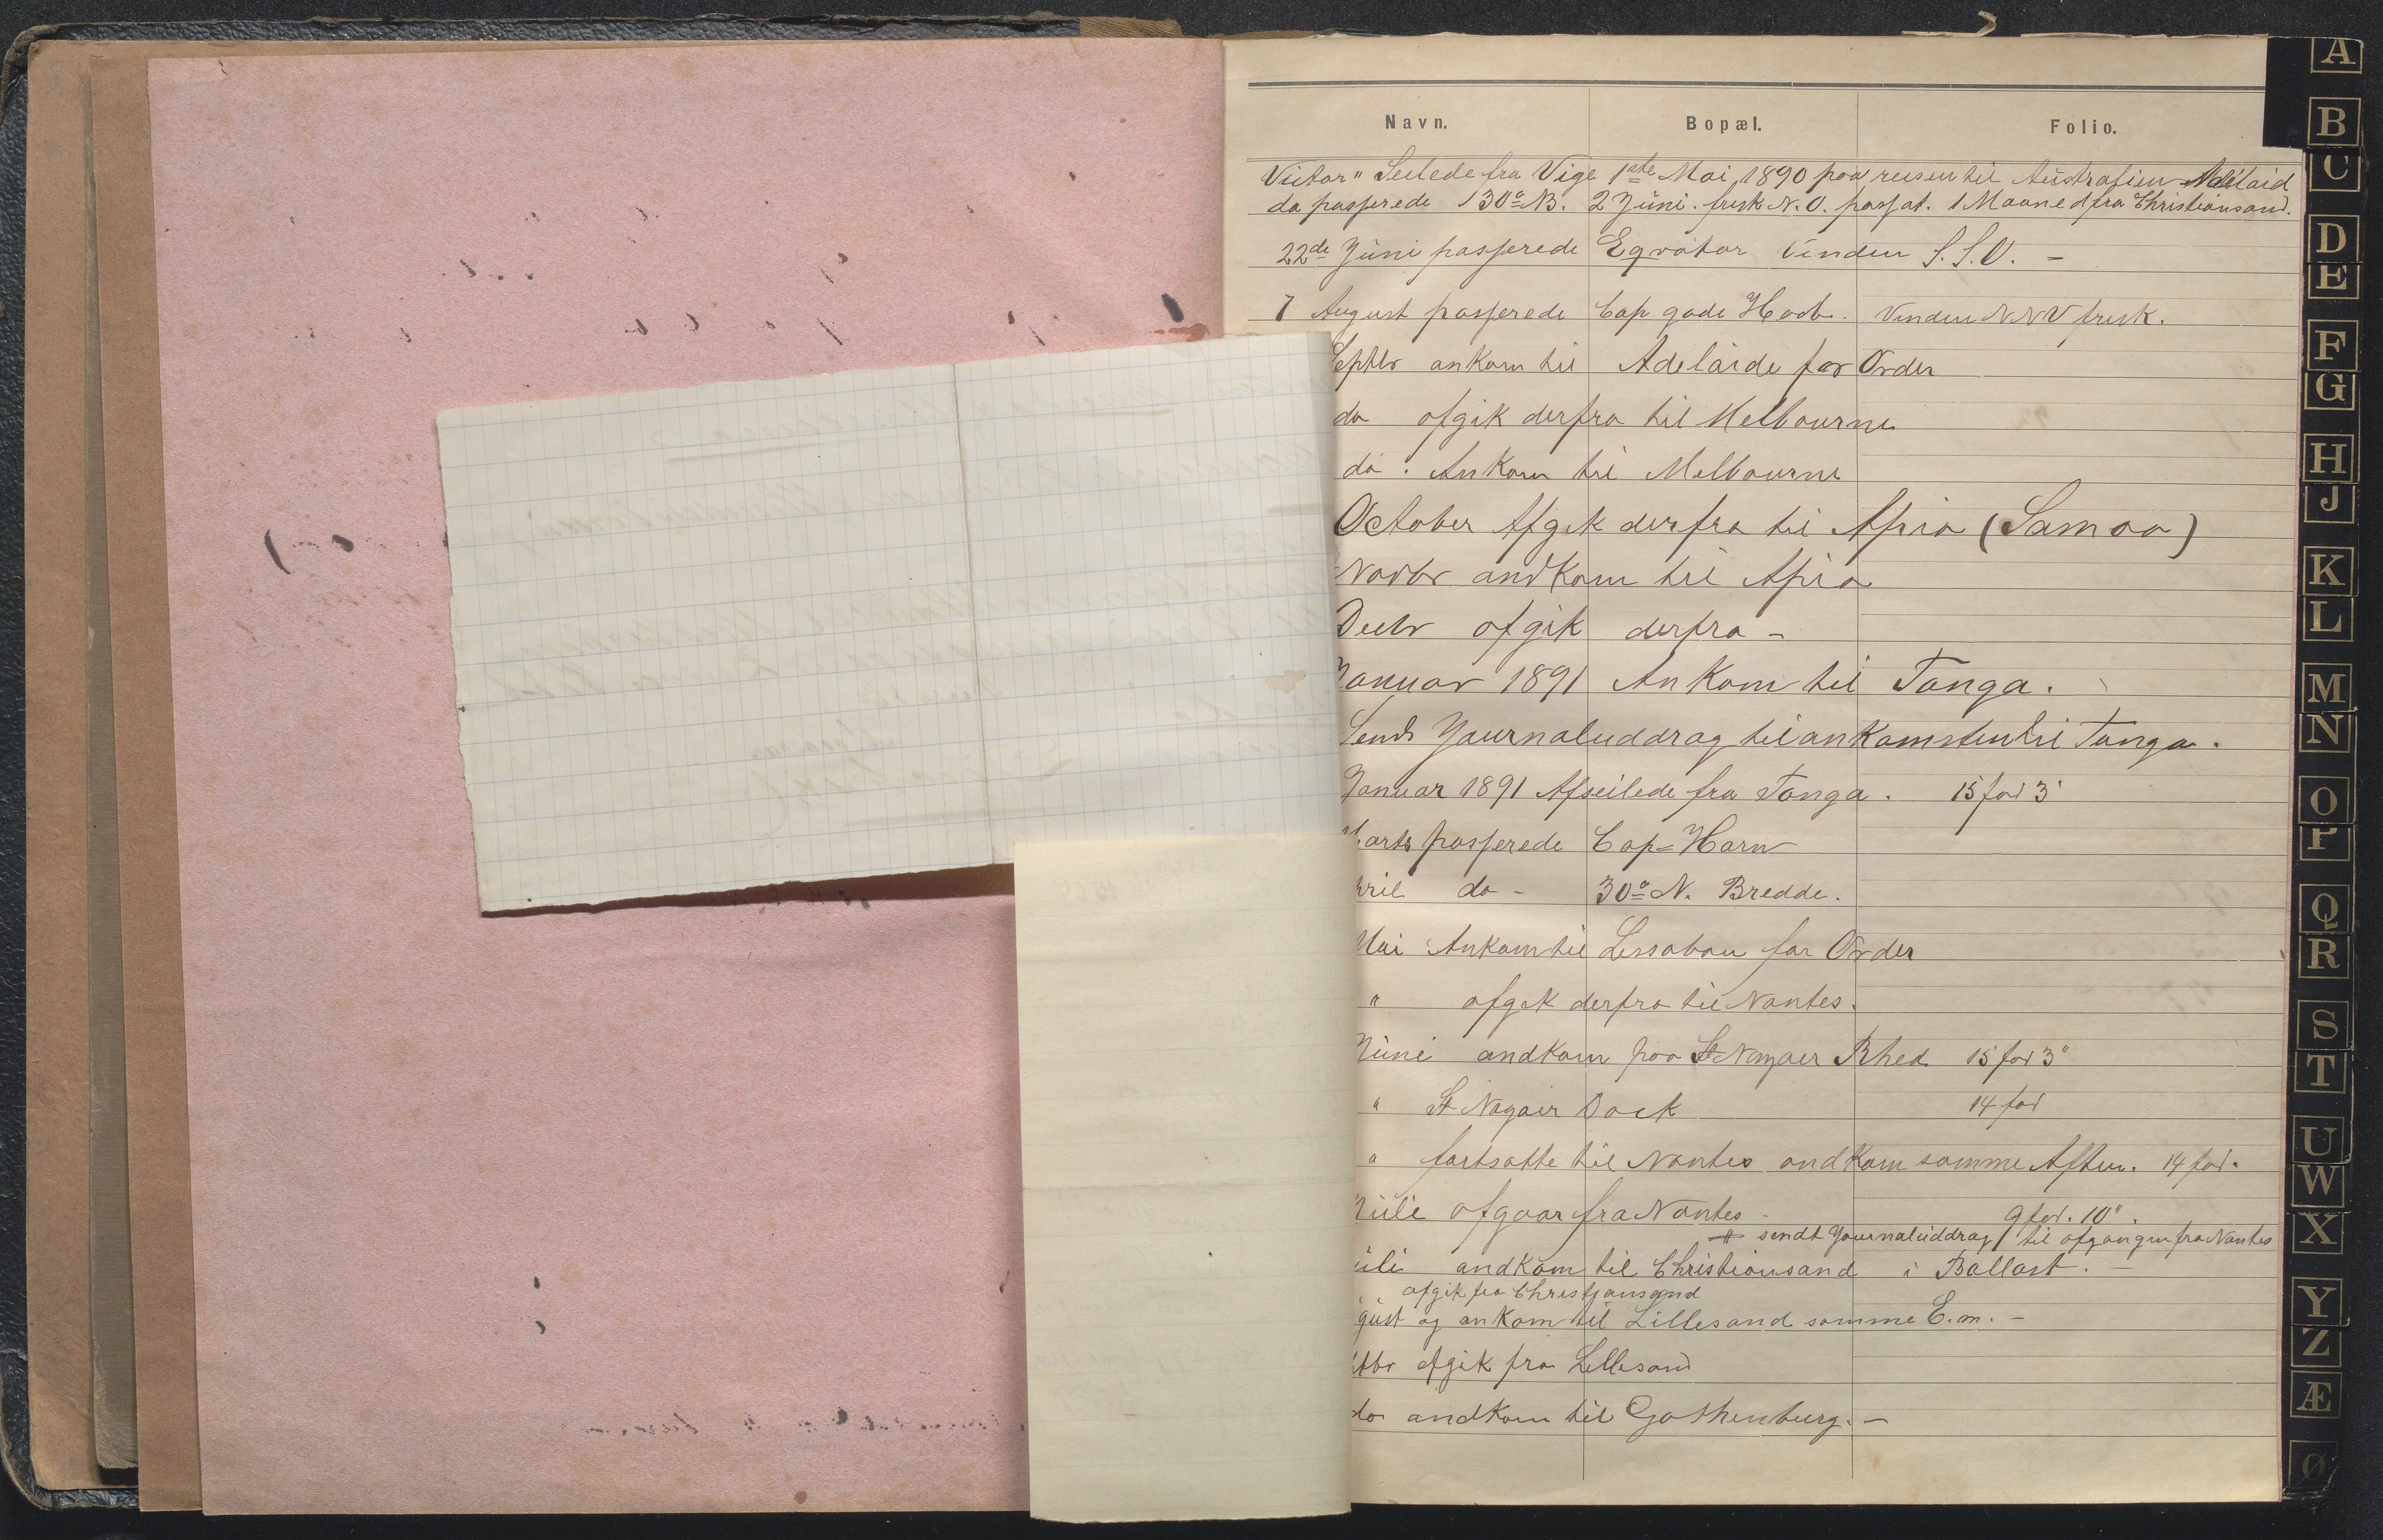 Navn. Bopæl. Folio.
Victor" Seilede fra Vige 1ste Mai 1890 paa reisen til Australien Adelaid
da passerede 30° NB. 2 Juni. frisk N.O. passat. 1 Maaned fra Christiansand.
22de Juni passerede Eqvator Vinden S.S.O. -
7 August passerede Cap gode Hoob. Vinden NNV frisk.
Septbr ankom til Adelaide for Order
do afgik derfra til Melbourne
do. Ankom til Melbourne
October Afgik derfra til Apia (Samoa)
Novbr andkom til Apia
Decbr afgik derfra -
Januar 1891 Ankom til Tonga.
Sends Journaluddrag til ankomsten til Tonga.
Januar 1891 Afseilede fra Tonga. 15 fod 3"
Marts passerede Cap=Horn
pril do - 30° N. Bredde.
Mai Ankom til Lissabon for Order
" afgik derfra til Nantes.
Juni andkom paa St Nazaer Rhed 15 fod 3"
" St Nazair Dock 14 fod
" fortsatte til Nantes andkom samme Aften. 14 fod.
Juli afgaar fra Nantes - 9 fod. 10".
# sendt Journaluddrag til afgangen fra Nantes
uli andkom til Christiansand i Ballast. -
afgik fra Christjansand
gust og ankom til Lillesand samme E.m. -
tbr afgik fra Lillesand
do andkom til Gothenburg. -
A
B
C
D
E
F
G
H
J
K
L
M
N
O
P
Q
R
S
T
U
W
X
Y
Z
Æ
Ø